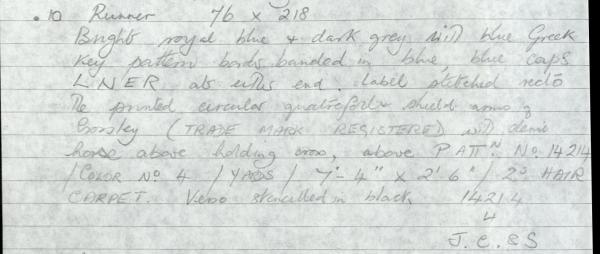 .10 Runner 76 x 218
Bright royal blue + dark grey with blue Greek
Key pattern bords banded in blue, blue caps
LNER at either end. Label stitched recto
The printed circular quatrefoil + shield arms of
Crossley (TRADE MARK REGISTERED) with demi
horse above holding cross, above PATTN. No. 14214
/ COLOR No 4 / YARDS / 7'-4" x 2'6" / 2S HAIR
CARPET. Verso stencilled in black, 14214
4
J.C. & S